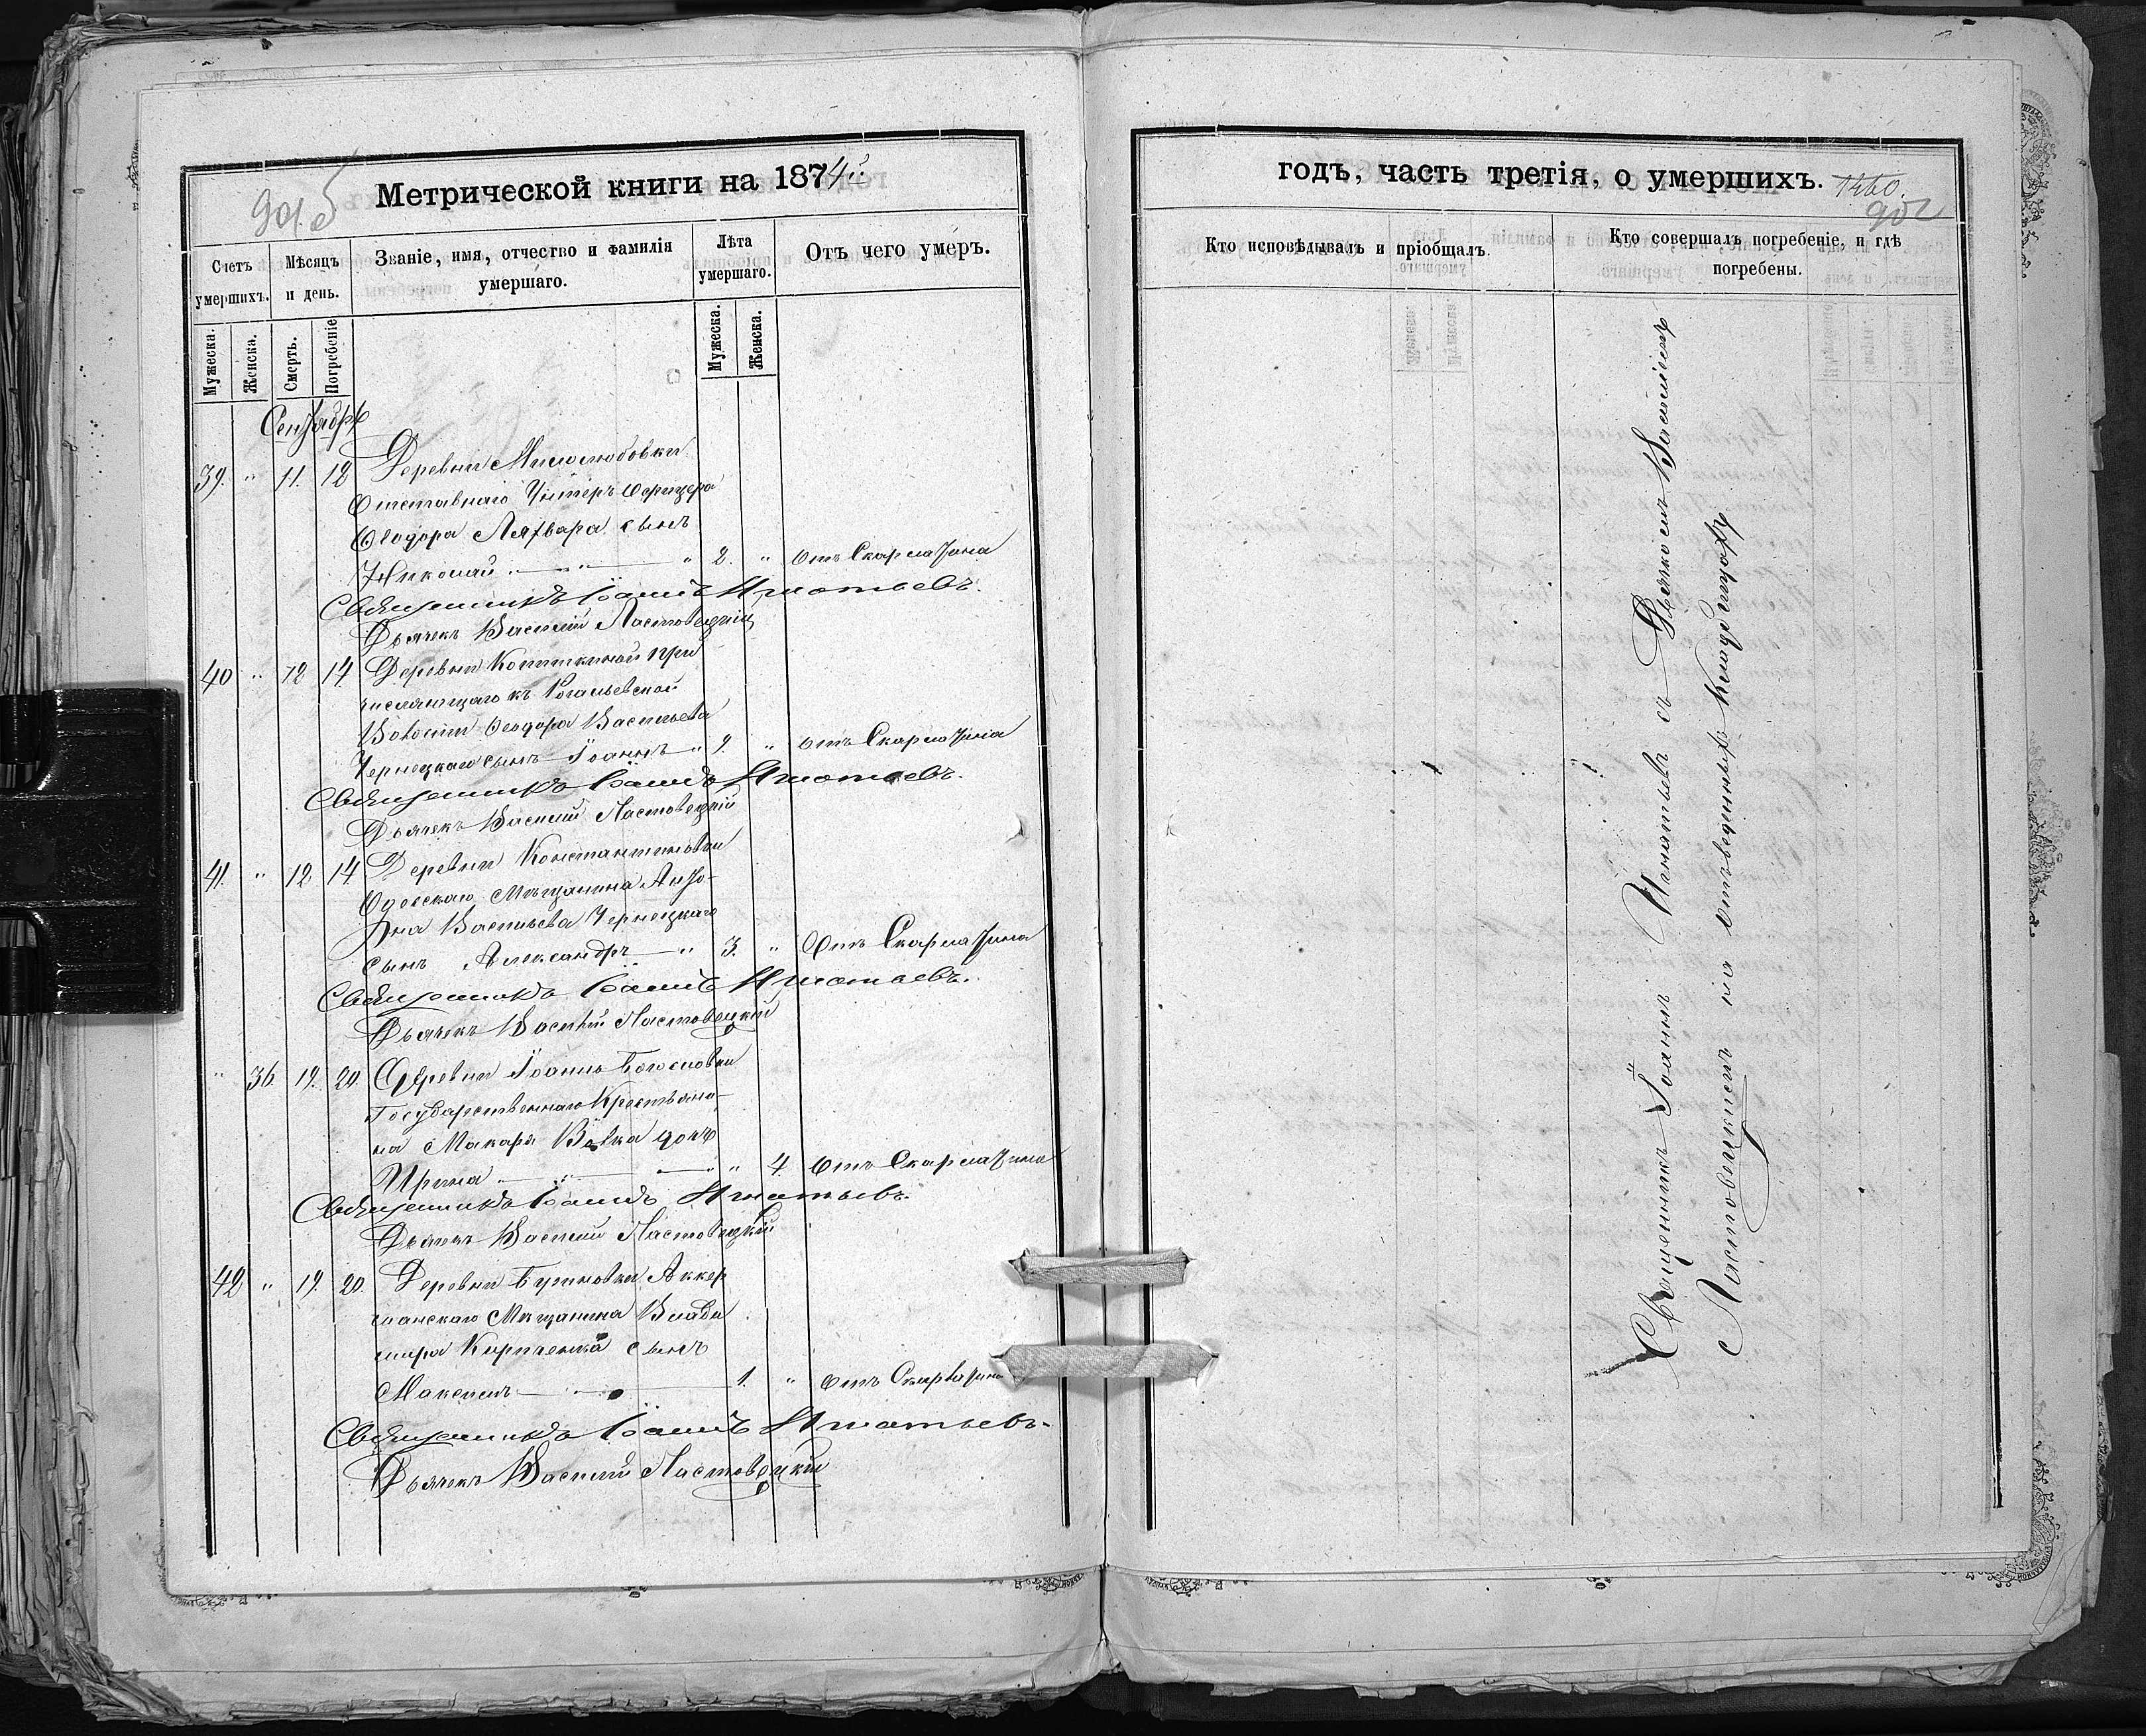 Метрической книги на 1874й
Счетъ умершихъ.
Мѣсяцъ и день.
Званіе, имя, отчество и фамилія умершаго.
Лѣта умершаго.
Отъ чего умеръ.
Мужеска.
Женска.
Смерть.
Погребеніе
Мужеска.
Женска.
Сентябрь
39. " 11. 12 Деревни Милолюбовки
Отставнаго Унтеръ-Офицера
Ѳеодора сынъ
Николай " 2. " Отъ Скарлатина
Священникъ Іоаннъ Игнатьевъ.
Дьячекъ Василій Ластовецкій
40 " 12 14 Деревни при
числящаго къ
Волости Ѳеодора Васильева
Чернецкаго сынъ Іоаннъ " 2. " отъ Скарлатина
Священникъ Іоаннъ Игнатьевъ.
Дьячекъ Василій Ластовецкій
41. " 12 14 Деревни Константиновки
Одесскаго Мѣщанина Анто-
на Васильева Чернецкаго
сынъ Александръ " 3. " Отъ Скарлатина
Священникъ Іоаннъ Игнатьевъ.
Дьячекъ Василій Ластовецкій
" 36 19. 20. Деревни Іоанно Богословки
Государственнаго Крестьяни-
на Макара Волка дочь
Ирина " " 4. Отъ Скарлатина
Священникъ Іоаннъ Игнатьевъ.
Дьячекъ Василій Ластовецкій
42 " 19. 20. Деревни Аккер
манскаго Мѣщанина Влади
мира Кириченка сынъ
Максимъ 1. " Отъ Скарлатина
Священникъ Іоаннъ Игнатьевъ.
Дьячекъ Василій Ластовецкій
годъ, часть третія, о умершихъ.
1460.
902
Кто исповѣдывалъ и пріобщалъ.
Кто совершалъ погребеніе, и гдѣ погребены.
Священникъ Іоаннъ Игнатьевъ съ Дьячкомъ Василіемъ
Ластовецкимъ на отведенныхъ Кладбищахъ